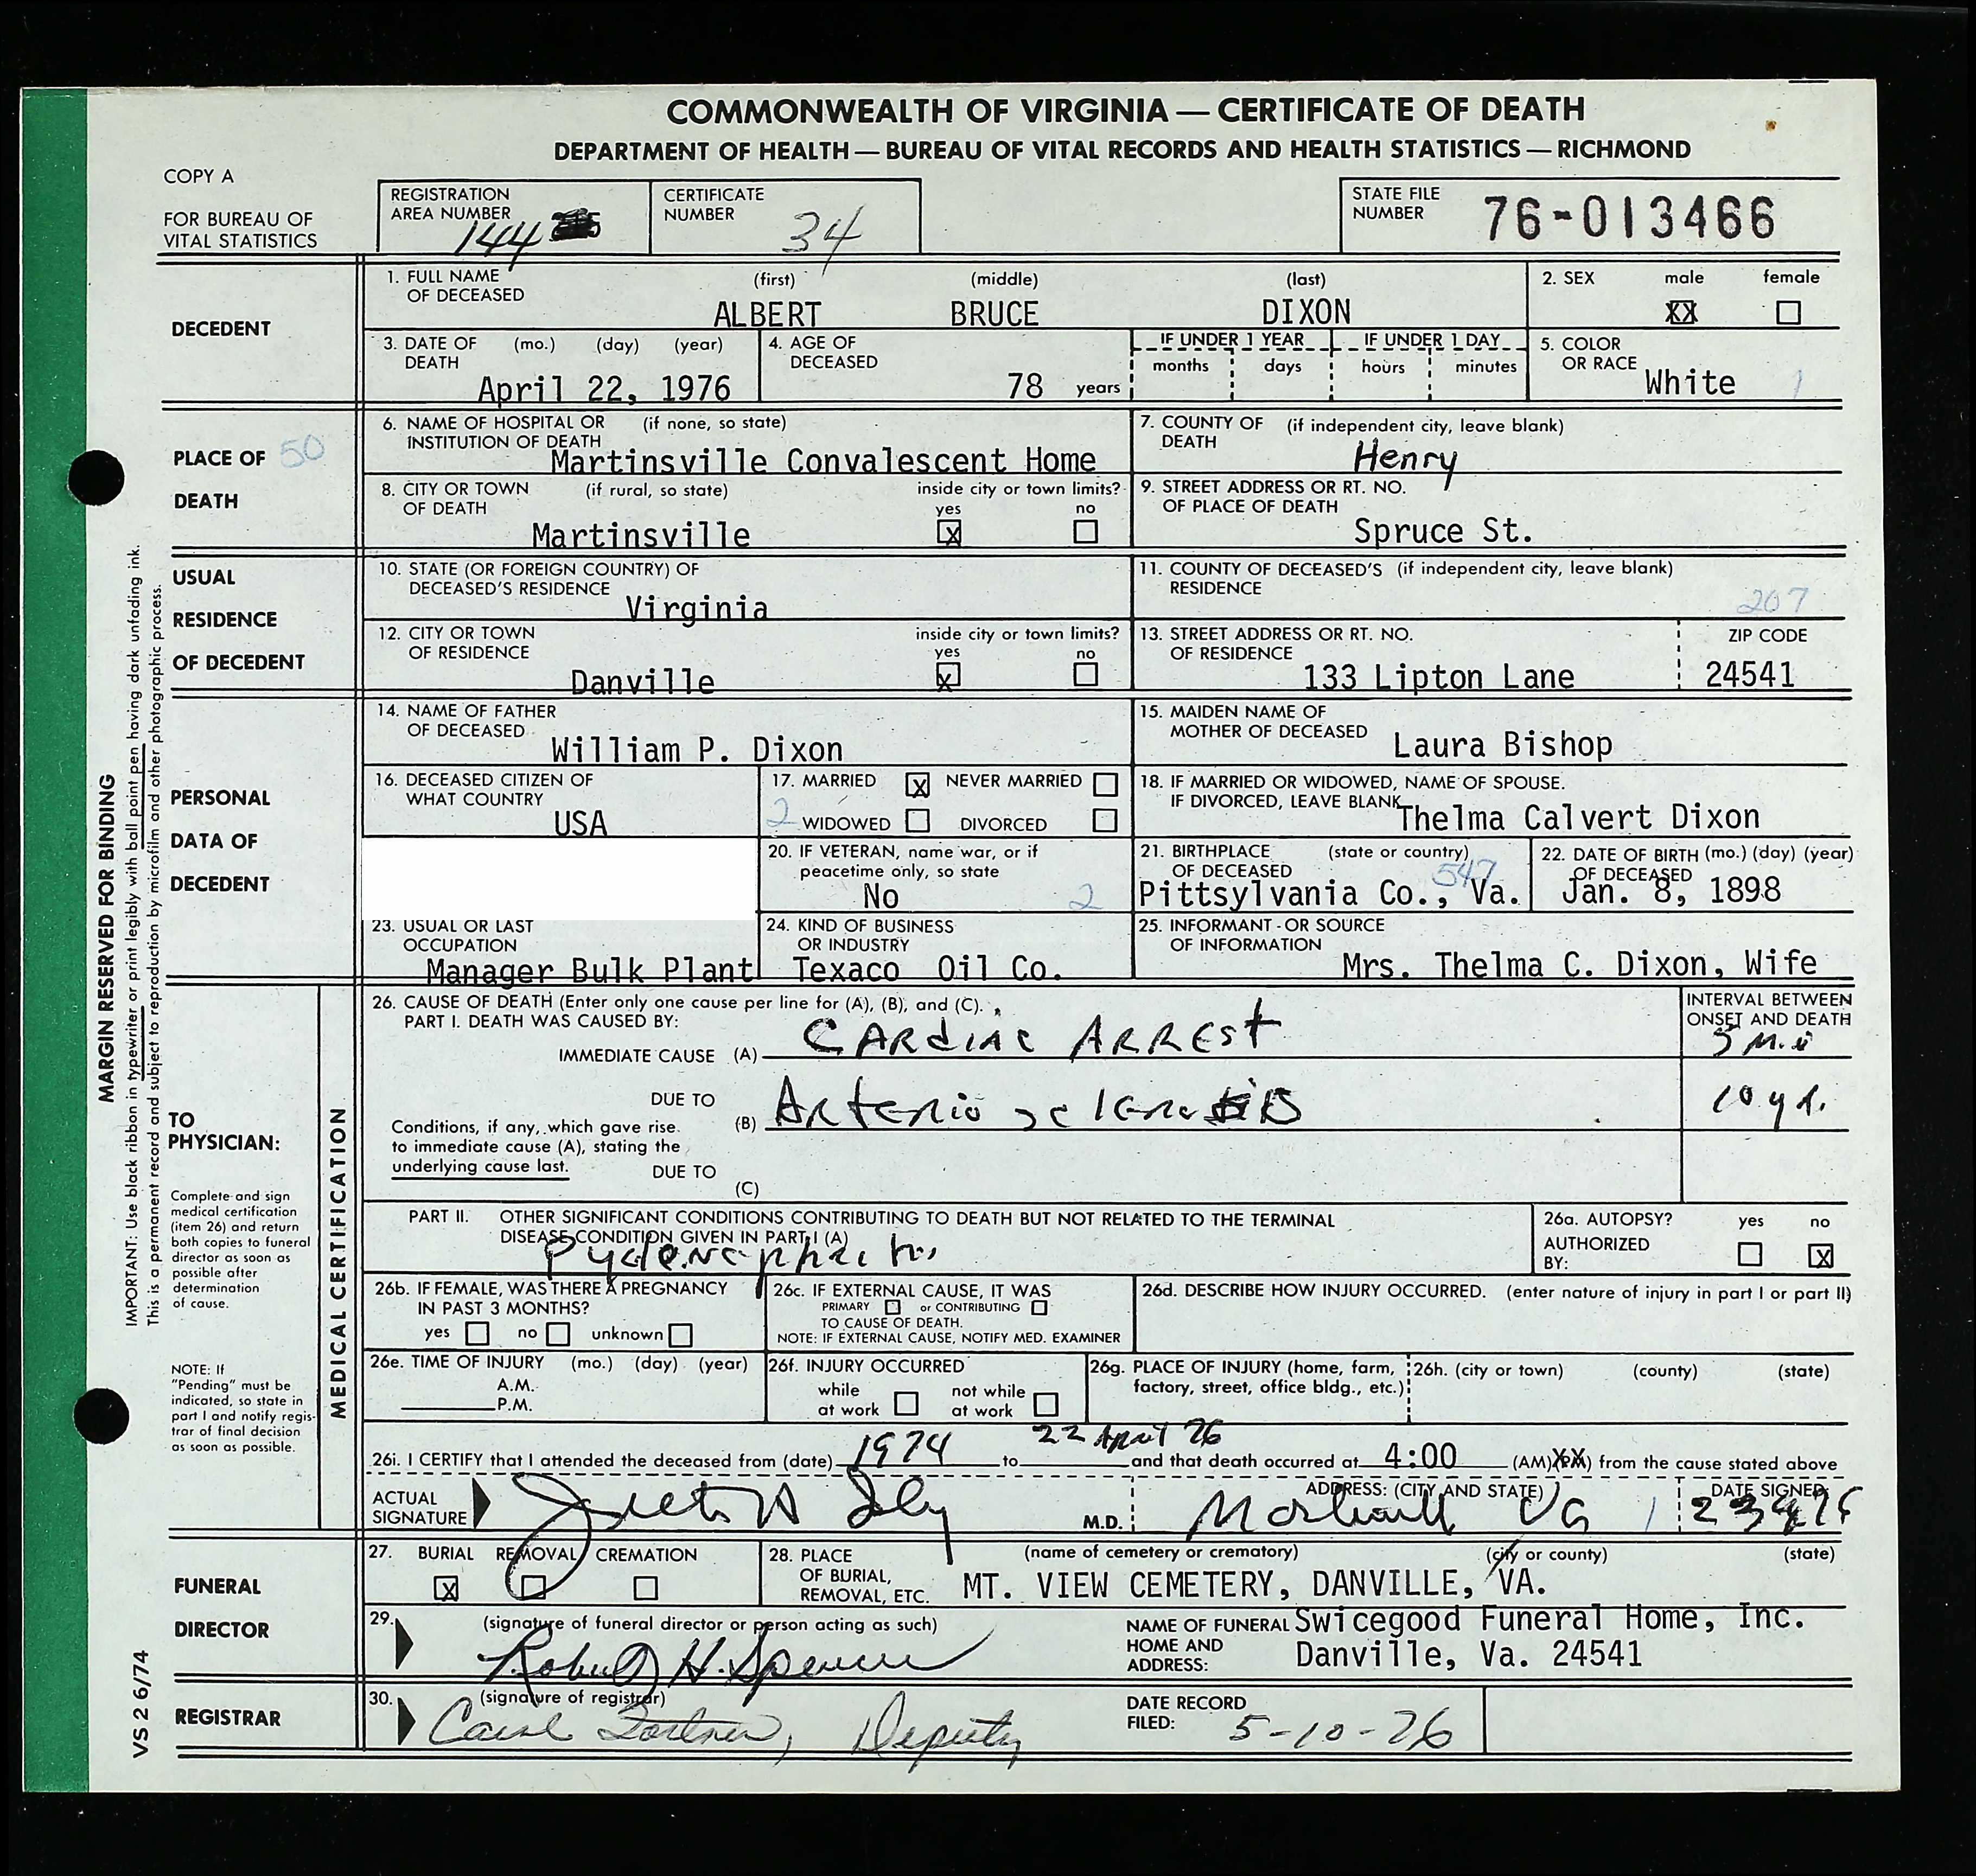 COMMONWEALTH OF VIRGINIA — CERTIFICATE OF DEATH
DEPARTMENT OF HEALTH — BUREAU OF VITAL RECORDS AND HEALTH STATISTICS — RICHMOND
COPY A
FOR BUREAU OF
VITAL STATISTICS
REGISTRATION
AREA NUMBER 144
CERTIFICATE
NUMBER 34
STATE FILE
NUMBER 76-013466
DECEDENT
1. FULL NAME OF DECEASED (first) (middle) (last)
ALBERT BRUCE DIXON
2. SEX male female
XX
3. DATE OF DEATH (mo.) (day) (year)
April 22, 1976
4. AGE OF DECEASED
78 years
IF UNDER 1 YEAR IF UNDER 1 DAY
months days hours minutes
5. COLOR OR RACE
White 1
PLACE OF 50
DEATH
6. NAME OF HOSPITAL OR (if none, so state)
INSTITUTION OF DEATH
Martinsville Convalescent Home
7. COUNTY OF (if independent city, leave blank)
DEATH
Henry
8. CITY OR TOWN (if rural, so state) inside city or town limits?
OF DEATH yes no
Martinsville X
9. STREET ADDRESS OR RT. NO.
OF PLACE OF DEATH
Spruce St.
USUAL
RESIDENCE
OF DECEDENT
10. STATE (OR FOREIGN COUNTRY) OF
DECEASED'S RESIDENCE
Virginia
11. COUNTY OF DECEASED'S (if independent city, leave blank)
RESIDENCE
207
12. CITY OR TOWN inside city or town limits?
OF RESIDENCE yes no
Danville X
13. STREET ADDRESS OR RT. NO. ZIP CODE
OF RESIDENCE
133 Lipton Lane 24541
PERSONAL
DATA OF
DECEDENT
14. NAME OF FATHER
OF DECEASED
William P. Dixon
15. MAIDEN NAME OF
MOTHER OF DECEASED
Laura Bishop
16. DECEASED CITIZEN OF
WHAT COUNTRY
USA
17. MARRIED X NEVER MARRIED
2 WIDOWED DIVORCED
18. IF MARRIED OR WIDOWED, NAME OF SPOUSE.
IF DIVORCED, LEAVE BLANK
Thelma Calvert Dixon
20. IF VETERAN, name war, or if
peacetime only, so state
No 2
21. BIRTHPLACE (state or country)
OF DECEASED 547
Pittsylvania Co., Va.
22. DATE OF BIRTH (mo.) (day) (year)
OF DECEASED
Jan. 8, 1898
23. USUAL OR LAST
OCCUPATION
Manager Bulk Plant
24. KIND OF BUSINESS
OR INDUSTRY
Texaco Oil Co.
25. INFORMANT - OR SOURCE
OF INFORMATION
Mrs. Thelma C. Dixon, Wife
TO
PHYSICIAN:
Complete and sign
medical certification
(item 26) and return
both copies to funeral
director as soon as
possible after
determination
of cause.
NOTE: If
"Pending" must be
indicated, so state in
part I and notify regis-
trar of final decision
as soon as possible.
MEDICAL CERTIFICATION
26. CAUSE OF DEATH (Enter only one cause per line for (A), (B), and (C).
PART I. DEATH WAS CAUSED BY:
INTERVAL BETWEEN
ONSET AND DEATH
IMMEDIATE CAUSE (A) CARDIAC ARREST 5 Min
DUE TO
(B) Arteriosclerosis 10 yr.
Conditions, if any, which gave rise
to immediate cause (A), stating the
underlying cause last.
DUE TO
(C)
PART II. OTHER SIGNIFICANT CONDITIONS CONTRIBUTING TO DEATH BUT NOT RELATED TO THE TERMINAL
DISEASE CONDITION GIVEN IN PART I (A)
Pyelonephritis
26a. AUTOPSY? yes no
AUTHORIZED
BY: X
26b. IF FEMALE, WAS THERE A PREGNANCY
IN PAST 3 MONTHS?
yes no unknown
26c. IF EXTERNAL CAUSE, IT WAS
PRIMARY or CONTRIBUTING
TO CAUSE OF DEATH.
NOTE: IF EXTERNAL CAUSE, NOTIFY MED. EXAMINER
26d. DESCRIBE HOW INJURY OCCURRED. (enter nature of injury in part I or part II)
26e. TIME OF INJURY (mo.) (day) (year)
A.M.
P.M.
26f. INJURY OCCURRED
while not while
at work at work
26g. PLACE OF INJURY (home, farm,
factory, street, office bldg., etc.)
26h. (city or town) (county) (state)
26i. I CERTIFY that I attended the deceased from (date) 1974 to 22 April 76 and that death occurred at 4:00 (AM) (PM) from the cause stated above
ACTUAL
SIGNATURE
M.D.
ADDRESS: (CITY AND STATE)
Va 1
DATE SIGNED:
FUNERAL
DIRECTOR
27. BURIAL REMOVAL CREMATION
X
28. PLACE
OF BURIAL,
REMOVAL, ETC.
(name of cemetery or crematory) (city or county) (state)
MT. VIEW CEMETERY, DANVILLE, VA.
29. (signature of funeral director or person acting as such)
Robert H. Spencer
NAME OF FUNERAL
HOME AND
ADDRESS:
Swicegood Funeral Home, Inc.
Danville, Va. 24541
REGISTRAR
30. (signature of registrar)
Deputy
DATE RECORD
FILED: 5-10-76
MARGIN RESERVED FOR BINDING
IMPORTANT: Use black ribbon in typewriter or print legibly with ball point pen having dark unfading ink.
This is a permanent record and subject to reproduction by microfilm and other photographic process.
VS 2 6/74